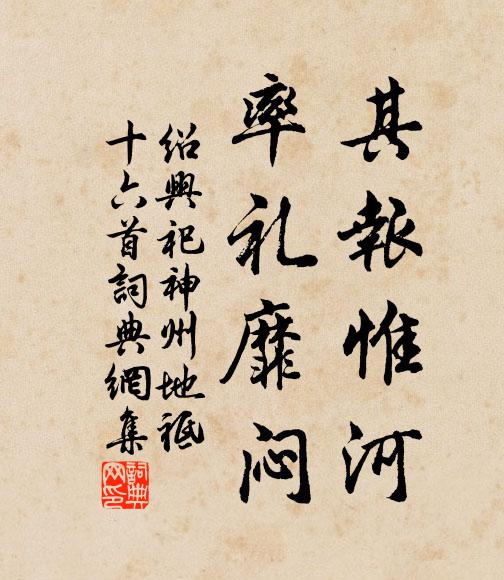 其報惟河
率礼靡闷
绍興祀神州地祇
十六首詞典網集
詞典網印